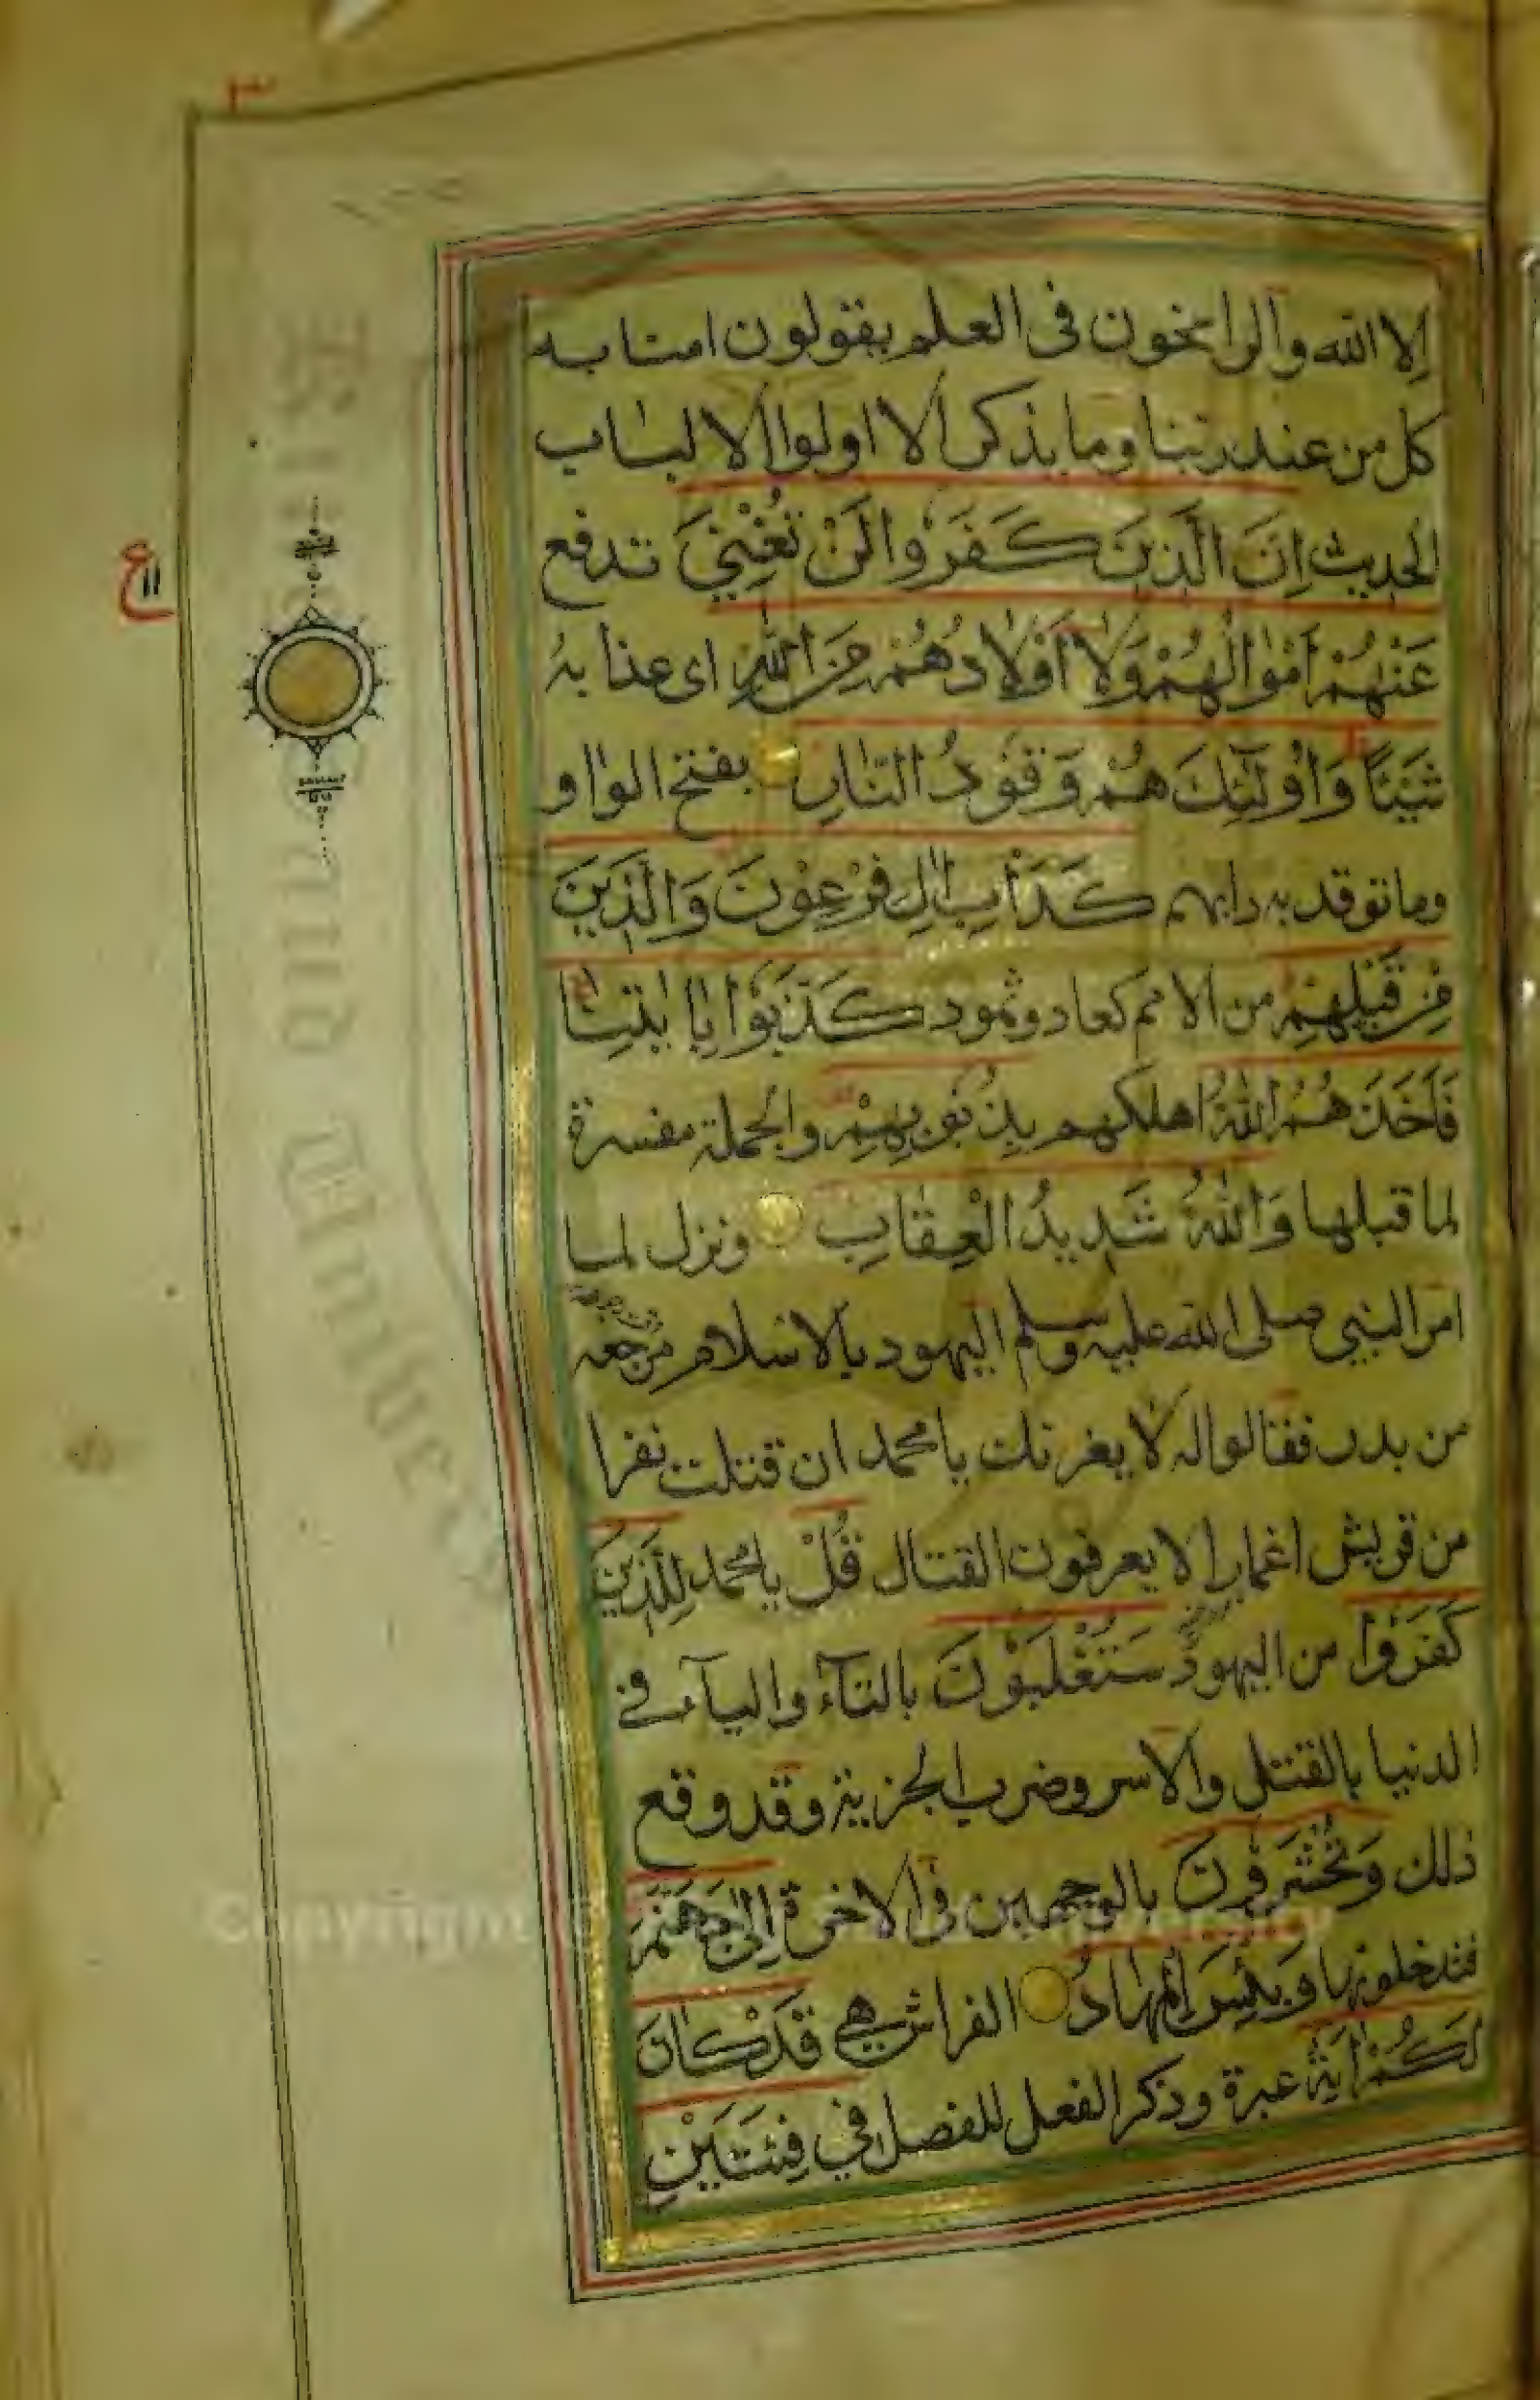 الا الله والراسخون فى العلم يقولون امنا به
كل من عند ربنا وما يذكر الا اولوا الالباب
الحديث اِنَّ الَّذِينَ كَفَرُوا لَنْ تُغْنِيَ تدفع
عَنْهُمْ اَمْوَالُهُمْ وَلَا اَوْلَادُهُمْ مِنَ اللّٰهِ اى عذابه
شَيْئًا وَاُولٰٓئِكَ هُمْ وَقُوْدُ النَّارِ بفتح الواو
وما توقد به دابهم كَدَاْبِ اٰلِ فِرْعَوْنَ وَالَّذِينَ
مِنْ قَبْلِهِمْ من الامم كعاد وثمود كَذَّبُوْا بِاٰيٰتِنَا
فَاَخَذَهُمُ اللّٰهُ اهلكهم بِذُنُوْبِهِمْ والجملة مفسرة
لما قبلها وَاللّٰهُ شَدِيدُ الْعِقَابِ ونزل لما
امر النبي صلى الله عليه وسلم اليهود بالاسلام مرجعه
من بدر فقالوا له لا يغرنك يا محمد ان قتلت نفرا
من قريش اغمارا لا يعرفون القتال قُلْ يا محمد لِلَّذِيْنَ
كَفَرُوْا من اليهود سَتُغْلَبُوْنَ بالتآء واليآء في
الدنيا بالقتل والاسر وضرب الجزية وقد وقع
ذلك وَتُحْشَرُوْنَ بالوجهين فى الاخرة اِلٰى جَهَنَّمَ
فتدخلونها وَبِئْسَ الْمِهَادُ الفراش هي قَدْ كَانَ
لَكُمْ اٰيَةٌ عبرة وذكر الفعل للفصل في فِئَتَيْنِ
٣
ع
١١
Copyright